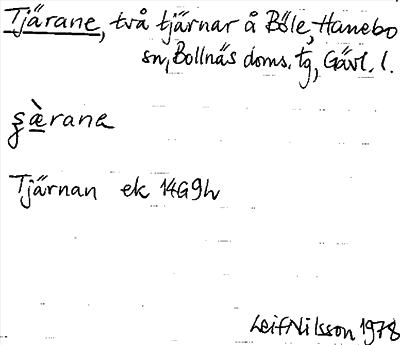 Tjärane, två tjärnar å Böle, Hanebo
sn, Bollnäs doms. tg, Gävl. l.
ʂæ̀rana
Tjärnan ek 14G9h
Leif Nilsson 1978